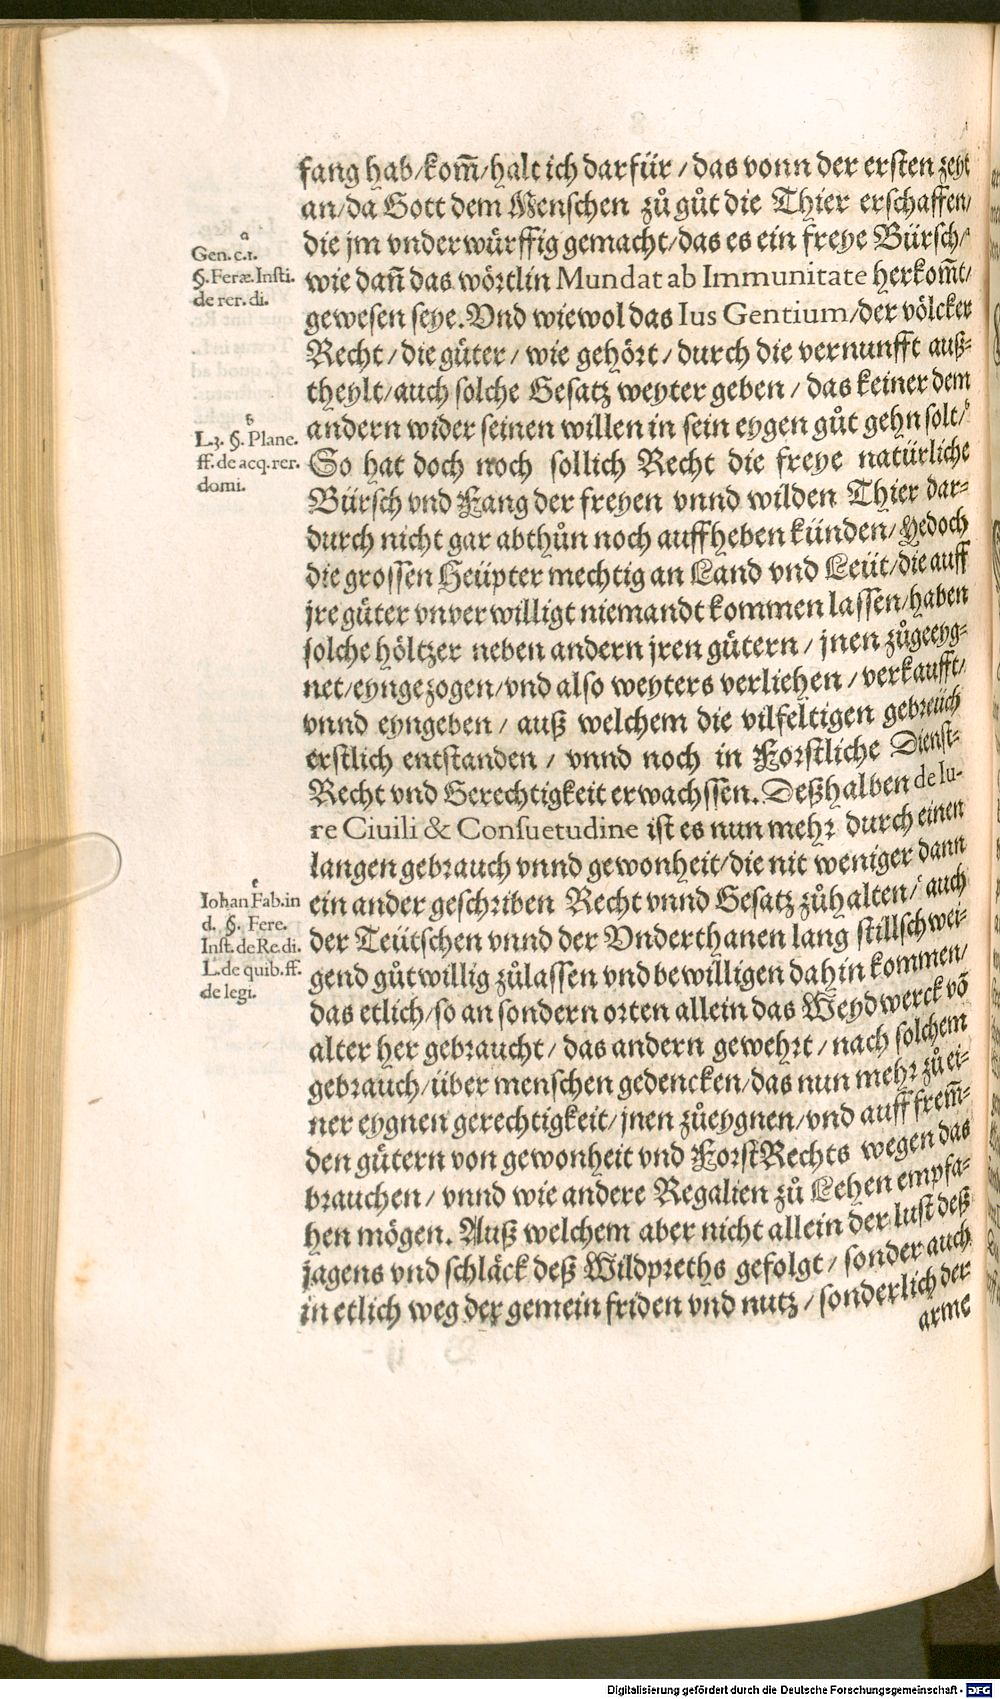 fang hab/kom̃/halt ich darfür/ das vonn der ersten zeyt
an/da Gott dem Menschen zů gůt die Thier erschaffen/
die jm vnderwürffig gemacht/das es ein freye Bürsch/ᵃ
wie dañ das wörtlin Mundat ab Immunitate herkom̃t/
gewesen seye. Vnd wiewol das Ius Gentium/der völcker
Recht/die güter/ wie gehört/ durch die vernunfft auß-
theylt/auch solche Gesatz weyter geben/ das keiner dem
andern wider seinen willen in sein eygen gůt gehn solt/ᵇ
So hat doch noch sollich Recht die freye natürliche
Bürsch vnd Fang der freyen vnnd wilden Thier dar-
durch nicht gar abthůn noch auffheben künden/ Yedoch
die grossen Heüpter mechtig an Land vnd Leüt/die auff
jre güter vnverwilligt niemandt kommen lassen/haben
solche höltzer neben andern jren gütern/ jnen zůgeeyg-
net/eyngezogen/vnd also weyters verliehen/ verkaufft/
vnnd eyngeben/ auß welchem die vilfeltigen gebreüch
erstlich entstanden/ vnnd noch in Forstliche Dienst-
Recht vnd Gerechtigkeit erwachssen. Deßhalben de Iu-
re Ciuili & Consuetudine ist es nun mehr durch einen
langen gebrauch vnnd gewonheit/die nit weniger dann
ein ander geschriben Recht vnnd Gesatz zůhalten/ᶜ auch
der Teütschen vnnd der Vnderthanen lang stillschwei-
gend gůtwillig zůlassen vnd bewilligen dahin kommen/
das etlich/so an sondern orten allein das Weydwerck võ
alter her gebraucht/ das andern gewehrt/ nach solchem
gebrauch/über menschen gedencken/das nun mehr zů ei-
ner eygnen gerechtigkeit/jnen zůeygnen/vnd auff frem̃-
den gütern von gewonheit vnd ForstRechts wegen das
brauchen/ vnnd wie andere Regalien zů Lehen empfa-
hen mögen. Auß welchem aber nicht allein der lust deß
jagens vnd schläck deß Wildpreths gefolgt/ sonder auch
in etlich weg der gemein friden vnd nutz/ sonderlich der
arme
a
Gen. c.1.
§. Feræ. Insti.
de rer. di.
b
L.3. §. Plane.
ff. de acq. rer.
domi.
c
Iohan Fab. in
d. §. Fere.
Inst. de Re. di.
L. de quib. ff.
de legi.
Digitalisierung gefördert durch die Deutsche Forschungsgemeinschaft - DFG